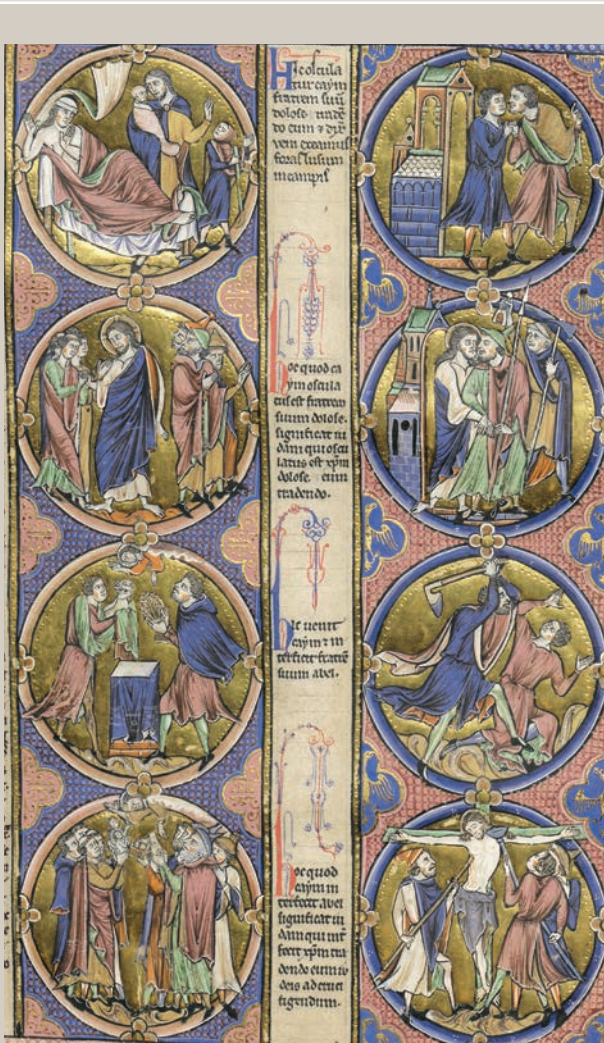 Hic oscula
tur caym
fratrem suum
dolose trade
do eum ⁊ dix̄
veni exeamus
foras lusum
in campis
hoc quod ca
ym oscula
tus est fratrem
suum dolose.
significat iu
dam qui oscu
latus est xp̄m
dolose eum
tradendo.
hic uenit
caym ⁊ in
terficit fratrē
suum abel.
hoc quod
caym in
terfecit abel
significat iu
dam qui int̄
fecit xp̄m tra
dendo eum iu
deis ad cruci
figendum.